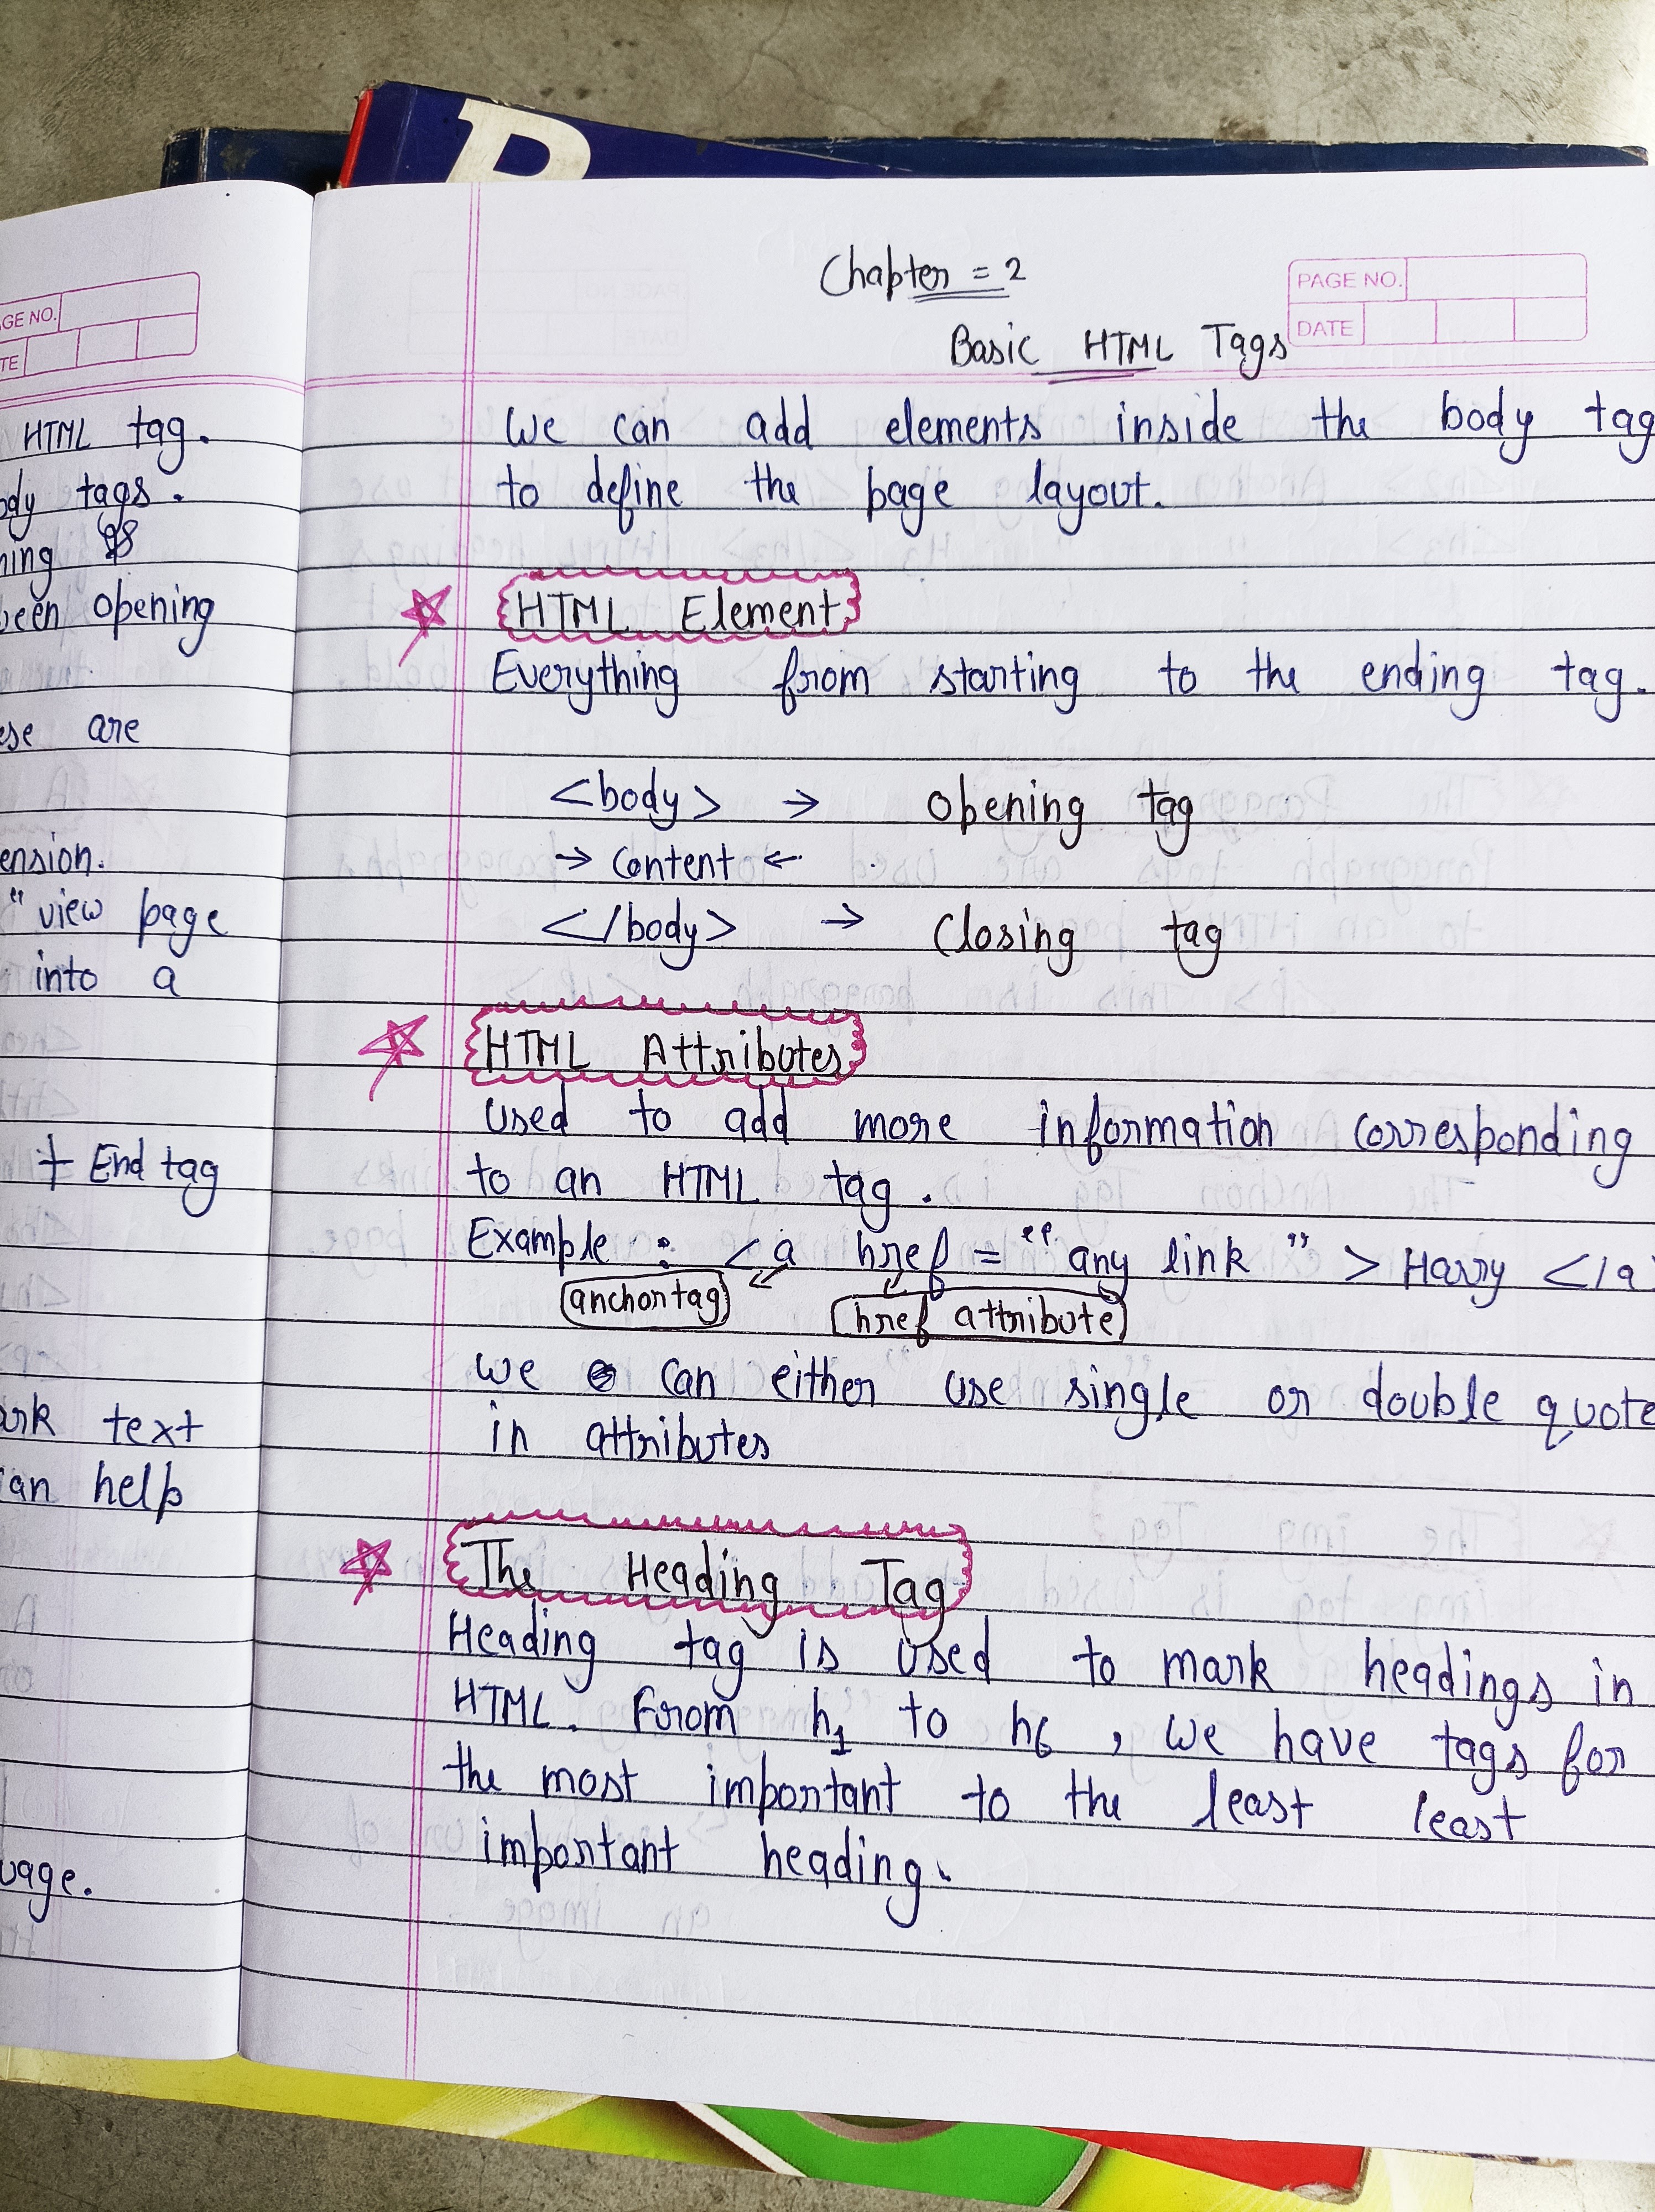 B
GE NO.
TE
HTML tag.
ody tags.
ning
been opening
ese are
ension.
" view page
into a
+ End tag
ark text
an help
uage.
Chapter = 2
PAGE NO.
DATE
Basic HTML Tags
We can add elements inside the body tag
to define the page layout.
HTML Element
Everything from starting to the ending tag.
<body> → opening tag
→ content ←
</body> → Closing tag
HTML Attributes
used to add more information corresponding
to an HTML tag.
Example : <a href = "any link" > Harry </a
anchor tag
href attribute
we can either use single or double quote
in attributes
The Heading Tag
Heading tag is used to mark headings in
HTML. From h1 to h6, we have tags for
the most important to the least least
important heading.